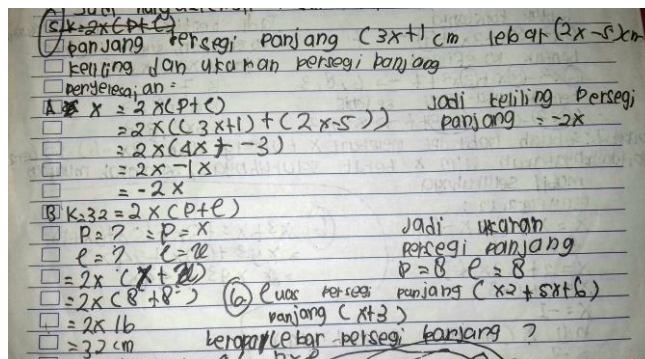 5. K=2x(P+l)
panjang persegi panjang (3x+1 cm lebar (2x-5)cm
keliling dan ukuran persegi panjang
penyelesaian =
A x = 2x(P+l)
= 2x((3x+1)+(2x-5))
= 2x(4x + -3)
= 2x -1x
= -2x
Jadi keliling persegi
panjang = -2x
B K=32 = 2x(P+l)
P=? = P=x
l=?
= 2x (x+
= 2x(8+8)
= 2x16
= 32cm
Jadi ukuran
persegi panjang
P=8 l=8
6. Luas persegi panjang (x2+5x+6)
panjang (x+3)
berapa lebar persegi panjang?